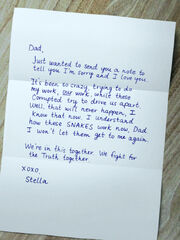 Dad,
Just wanted to send you a note to
tell you I'm sorry and I love you.
It's been so crazy, trying to do
my work, our work, while these
Corrupted try to drive us apart.
Well, that will never happen, I
know that now. I understand
how these SNAKES work now, Dad.
I won't let them get to me again.
We're in this together. We fight for
the Truth together.
XOXO,
Stella